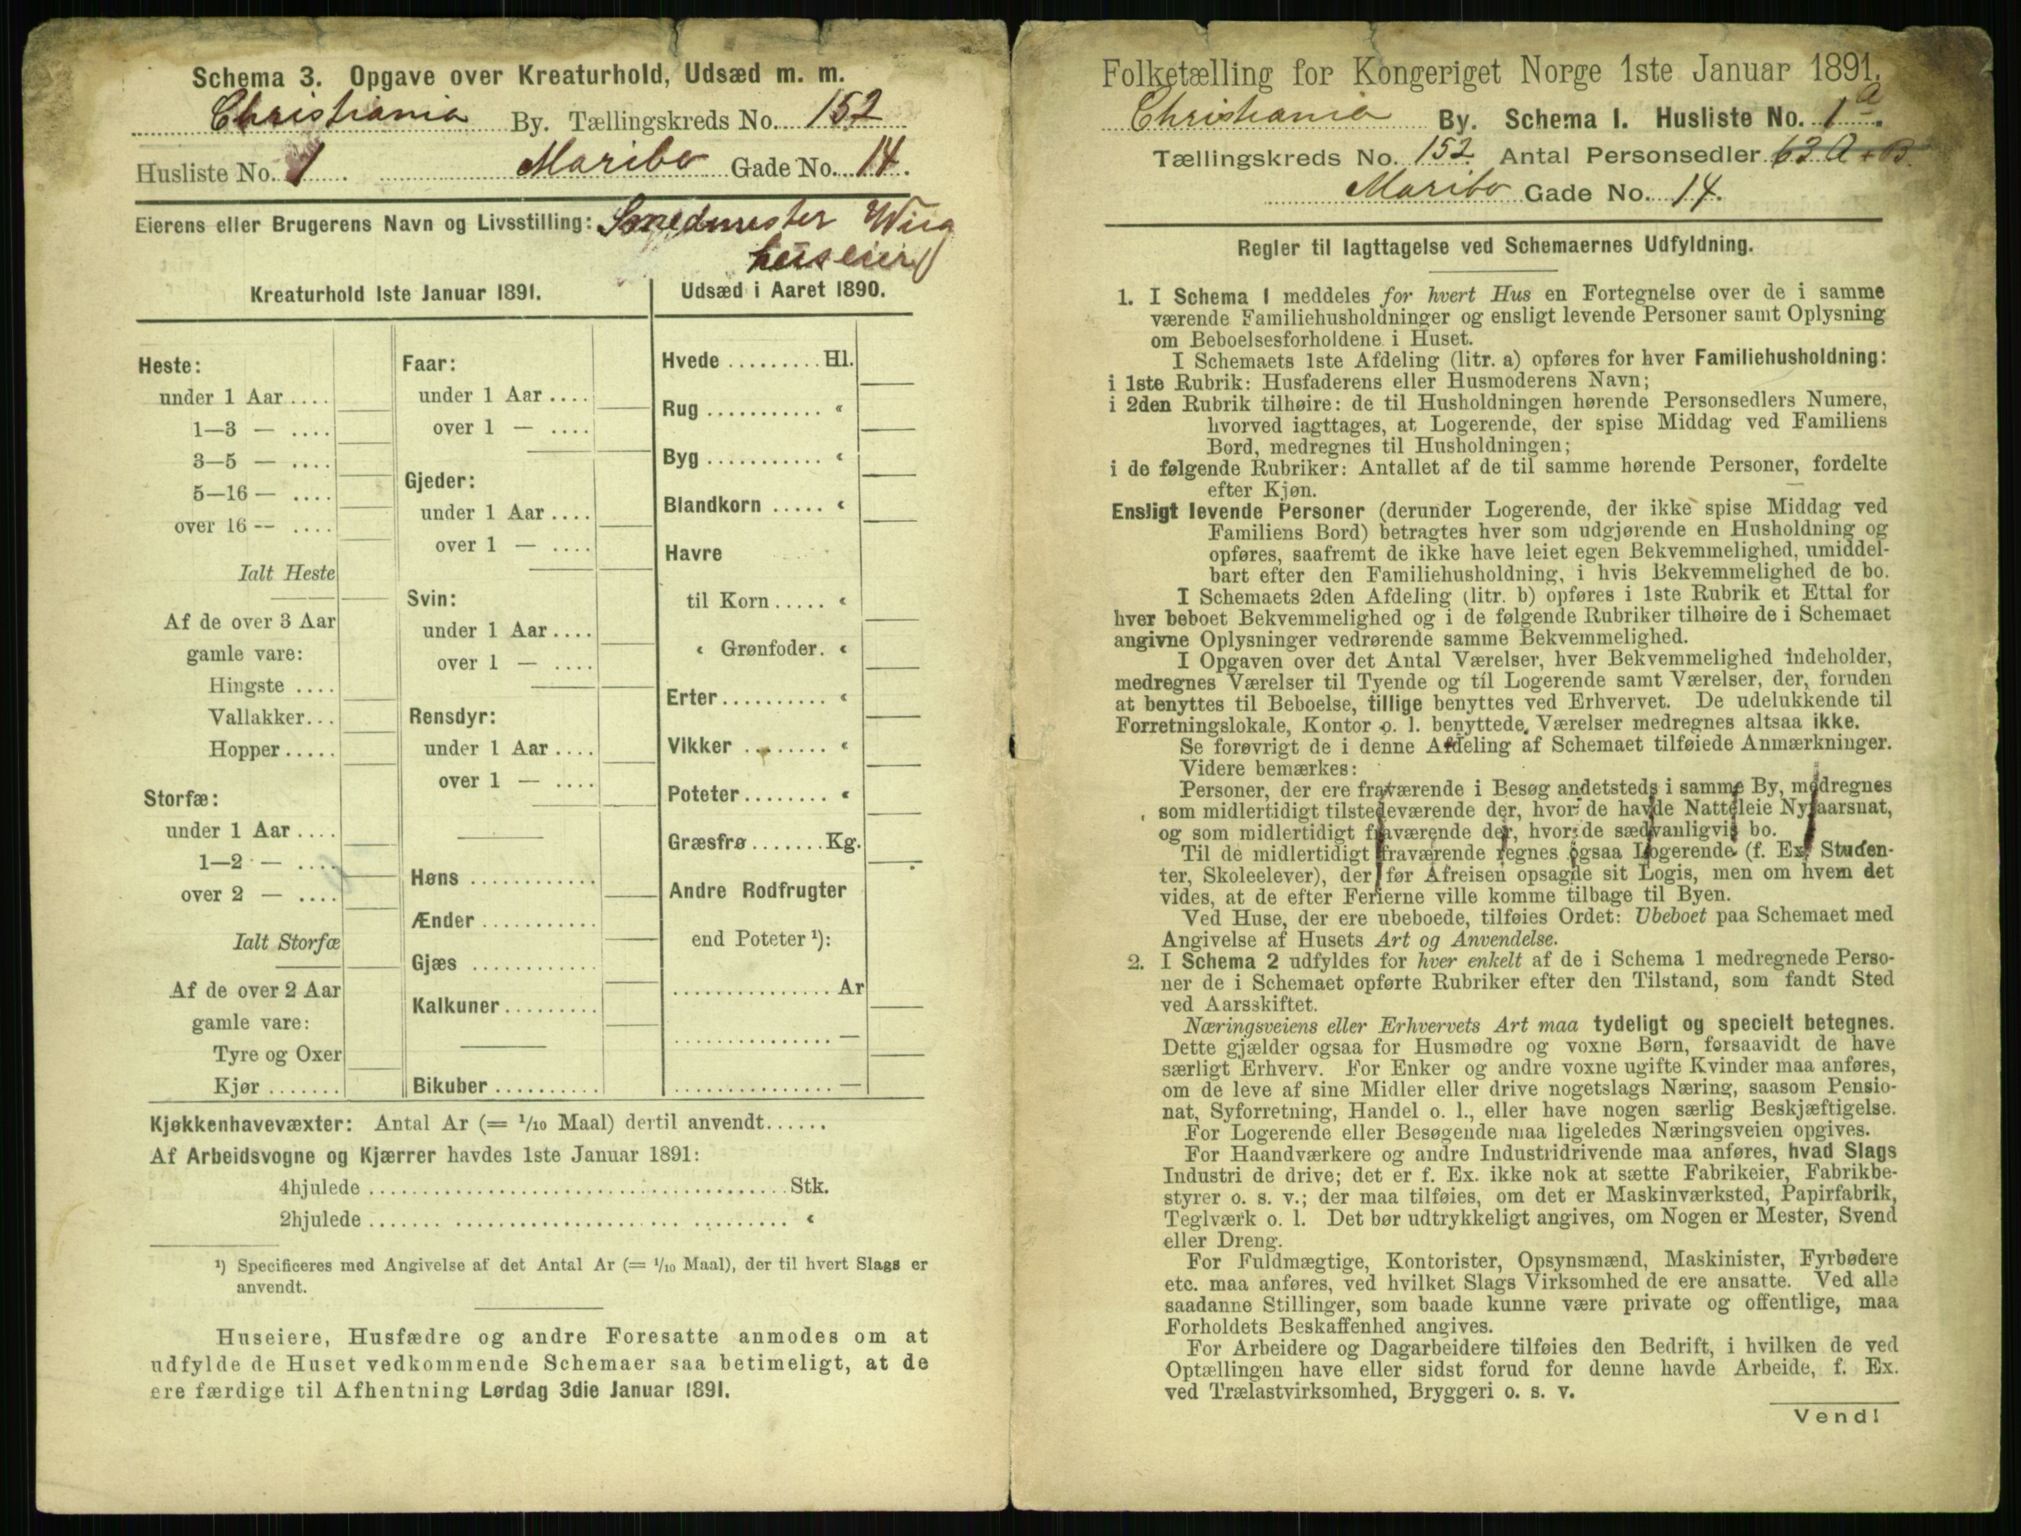 Schema 3. Opgave over Kreaturhold, Udsæd m. m.
Christiania By. Tællingskreds No. 152
Husliste No. 1. Maribo Gade No. 14.
Eierens eller Brugerens Navn og Livsstilling: Smedmester Wiig
huseier
Kreaturhold 1ste Januar 1891.
Heste:
under 1 Aar ....
1—3 — ....
3—5 — ....
5—16 — ....
over 16 — ....
Ialt Heste
Af de over 3 Aar
gamle vare:
Hingste ....
Vallakker...
Hopper .....
Storfæ:
under 1 Aar ....
1—2 — ....
over 2 — ....
Ialt Storfæ
Af de over 2 Aar
gamle vare:
Tyre og Oxer
Kjør .......
Faar:
under 1 Aar ....
over 1 — ....
Gjeder:
under 1 Aar ....
over 1 — ....
Svin:
under 1 Aar ....
over 1 — ....
Rensdyr:
under 1 Aar ....
over 1 — ....
Høns ............
Ænder ...........
Gjæs ............
Kalkuner.........
Bikuber..........
Udsæd i Aaret 1890.
Hvede ......... Hl.
Rug ........... «
Byg ........... «
Blandkorn ..... «
Havre
til Korn ..... «
« Grønfoder. «
Erter.......... «
Vikker ........ «
Poteter........ «
Græsfrø ....... Kg.
Andre Rodfrugter
end Poteter ¹):
............... Ar
............... —
............... —
Kjøkkenhavevæxter: Antal Ar (= 1/10 Maal) dertil anvendt......
Af Arbeidsvogne og Kjærrer havdes 1ste Januar 1891:
4hjulede ........................................ Stk.
2hjulede ........................................ «
¹) Specificeres med Angivelse af det Antal Ar (= 1/10 Maal), der til hvert Slags er
anvendt.
Huseiere, Husfædre og andre Foresatte anmodes om at
udfylde de Huset vedkommende Schemaer saa betimeligt, at de
ere færdige til Afhentning Lørdag 3die Januar 1891.
Folketælling for Kongeriget Norge 1ste Januar 1891.
Christiania By. Schema 1. Husliste No. 1a.
Tællingskreds No. 152 Antal Personsedler 63 A + B.
Maribo Gade No. 14.
Regler til Iagttagelse ved Schemaernes Udfyldning.
1. I Schema 1 meddeles for hvert Hus en Fortegnelse over de i samme
værende Familiehusholdninger og ensligt levende Personer samt Oplysning
om Beboelsesforholdene i Huset.
I Schemaets 1ste Afdeling (litr. a) opføres for hver Familiehusholdning:
i 1ste Rubrik: Husfaderens eller Husmoderens Navn;
i 2den Rubrik tilhøire: de til Husholdningen hørende Personsedlers Numere,
hvorved iagttages, at Logerende, der spise Middag ved Familiens
Bord, medregnes til Husholdningen;
i de følgende Rubriker: Antallet af de til samme hørende Personer, fordelte
efter Kjøn.
Ensligt levende Personer (derunder Logerende, der ikke spise Middag ved
Familiens Bord) betragtes hver som udgjørende en Husholdning og
opføres, saafremt de ikke have leiet egen Bekvemmelighed, umiddel-
bart efter den Familiehusholdning, i hvis Bekvemmelighed de bo.
I Schemaets 2den Afdeling (litr. b) opføres i 1ste Rubrik et Ettal for
hver beboet Bekvemmelighed og i de følgende Rubriker tilhøire de i Schemaet
angivne Oplysninger vedrørende samme Bekvemmelighed.
I Opgaven over det Antal Værelser, hver Bekvemmelighed indeholder,
medregnes Værelser til Tyende og til Logerende samt Værelser, der, foruden
at benyttes til Beboelse, tillige benyttes ved Erhvervet. De udelukkende til
Forretningslokale, Kontor o. l. benyttede Værelser medregnes altsaa ikke.
Se forøvrigt de i denne Afdeling af Schemaet tilføiede Anmærkninger.
Videre bemærkes:
Personer, der ere fraværende i Besøg andetsteds i samme By, medregnes
som midlertidigt tilstedeværende der, hvor de havde Natteleie Nytaarsnat,
og som midlertidigt fraværende der, hvor de sædvanligvis bo.
Til de midlertidigt fraværende regnes ogsaa Logerende (f. Ex. Studen-
ter, Skoleelever), der før Afreisen opsagde sit Logis, men om hvem det
vides, at de efter Ferierne ville komme tilbage til Byen.
Ved Huse, der ere ubeboede, tilføies Ordet: Ubeboet paa Schemaet med
Angivelse af Husets Art og Anvendelse.
2. I Schema 2 udfyldes for hver enkelt af de i Schema 1 medregnede Perso-
ner de i Schemaet opførte Rubriker efter den Tilstand, som fandt Sted
ved Aarsskiftet.
Næringsveiens eller Erhvervets Art maa tydeligt og specielt betegnes.
Dette gjælder ogsaa for Husmødre og voxne Børn, forsaavidt de have
særligt Erhverv. For Enker og andre voxne ugifte Kvinder maa anføres,
om de leve af sine Midler eller drive nogetslags Næring, saasom Pensio-
nat, Syforretning, Handel o. l., eller have nogen særlig Beskjæftigelse.
For Logerende eller Besøgende maa ligeledes Næringsveien opgives.
For Haandværkere og andre Industridrivende maa anføres, hvad Slags
Industri de drive; det er f. Ex. ikke nok at sætte Fabrikeier, Fabrikbe-
styrer o. s. v.; der maa tilføies, om det er Maskinværksted, Papirfabrik,
Teglværk o. l. Det bør udtrykkeligt angives, om Nogen er Mester, Svend
eller Dreng.
For Fuldmægtige, Kontorister, Opsynsmænd, Maskinister, Fyrbødere
etc. maa anføres, ved hvilket Slags Virksomhed de ere ansatte. Ved alle
saadanne Stillinger, som baade kunne være private og offentlige, maa
Forholdets Beskaffenhed angives.
For Arbeidere og Dagarbeidere tilføies den Bedrift, i hvilken de ved
Optællingen have eller sidst forud for denne havde Arbeide, f. Ex.
ved Trælastvirksomhed, Bryggeri o. s. v.
Vend!